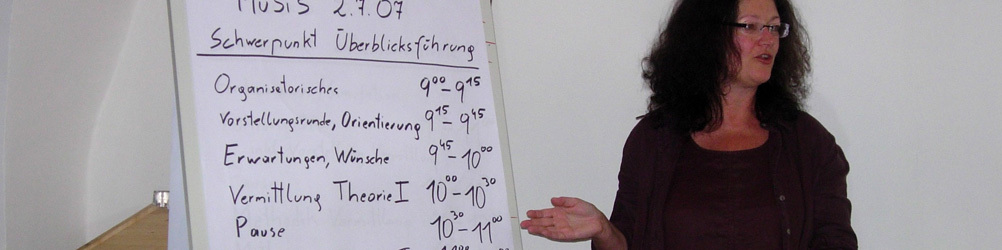 MUSIS 2.7.07
Schwerpunkt Überblicksführung
Organisatorisches 9⁰⁰-9¹⁵
Vorstellungsrunde, Orientierung 9¹⁵-9⁴⁵
Erwartungen, Wünsche 9⁴⁵-10⁰⁰
Vermittlung Theorie I 10⁰⁰-10³⁰
Pause 10³⁰-11⁰⁰